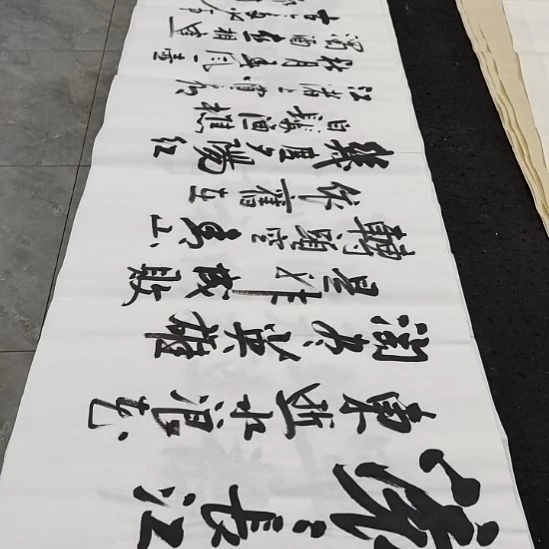 滚〻长江
東逝水浪花
淘尽英雄
是非成敗
轉頭空青山
依舊在
幾度夕陽红
白髮渔樵
江渚上惯看
秋月春风一壶
濁酒喜相逢
古今多少事